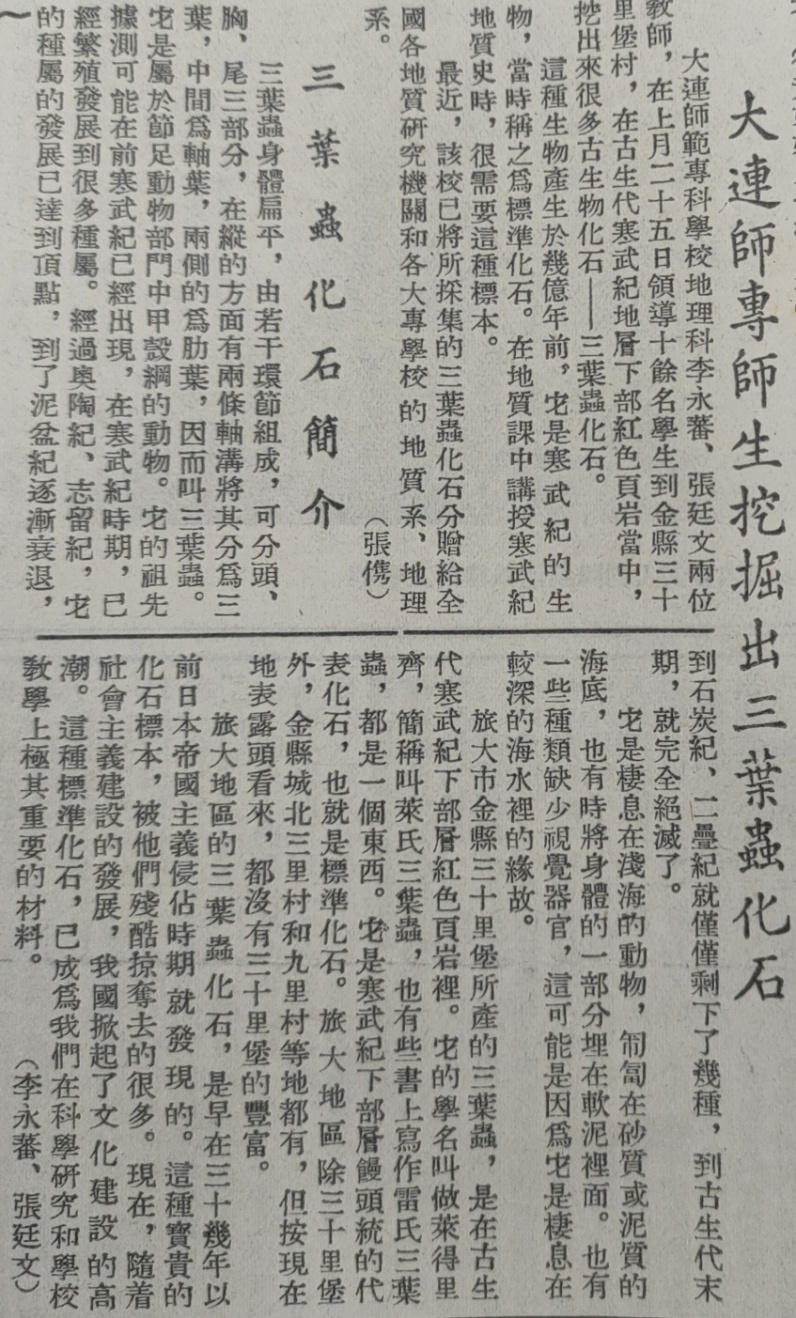 大連師專師生挖掘出三葉蟲化石
大連師範專科學校地理科李永蕃、張廷文兩位
教師，在上月二十五日領導十餘名學生到金縣三十
里堡村，在古生代寒武紀地層下部紅色頁岩當中，
挖出來很多古生物化石——三葉蟲化石。
這種生物產生於幾億年前，它是寒武紀的生
物，當時稱之爲標準化石。在地質課中講授寒武紀
地質史時，很需要這種標本。
最近，該校已將所採集的三葉蟲化石分贈給全
國各地質研究機關和各大專學校的地質系、地理
系。
（張儁）
三葉蟲化石簡介
三葉蟲身體扁平，由若干環節組成，可分頭、
胸、尾三部分，在縱的方面有兩條軸溝將其分爲三
葉，中間爲軸葉，兩側的爲肋葉，因而叫三葉蟲。
它是屬於節足動物部門中甲殼綱的動物。它的祖先
據測可能在前寒武紀已經出現，在寒武紀時期，已
經繁殖發展到很多種屬。經過奧陶紀、志留紀，它
的種屬的發展已達到頂點，到了泥盆紀逐漸衰退，
到石炭紀、二疊紀就僅僅剩下了幾種，到古生代末
期，就完全絕滅了。
它是棲息在淺海的動物，匍匐在砂質或泥質的
海底，也有時將身體的一部分埋在軟泥裡面。也有
一些種類缺少視覺器官，這可能是因爲它是棲息在
較深的海水裡的緣故。
旅大市金縣三十里堡所產的三葉蟲，是在古生
代寒武紀下部層紅色頁岩裡。它的學名叫做萊得里
齊，簡稱叫萊氏三葉蟲，也有些書上寫作雷氏三葉
蟲，都是一個東西。它是寒武紀下部層饅頭統的代
表化石，也就是標準化石。旅大地區除三十里堡
外，金縣城北三里村和九里村等地都有，但按現在
地表露頭看來，都沒有三十里堡的豐富。
旅大地區的三葉蟲化石，是早在三十幾年以
前日本帝國主義侵佔時期就發現的。這種寶貴的
化石標本，被他們殘酷掠奪去的很多。現在，隨着
社會主義建設的發展，我國掀起了文化建設的高
潮。這種標準化石，已成爲我們在科學研究和學校
教學上極其重要的材料。
（李永蕃、張廷文）